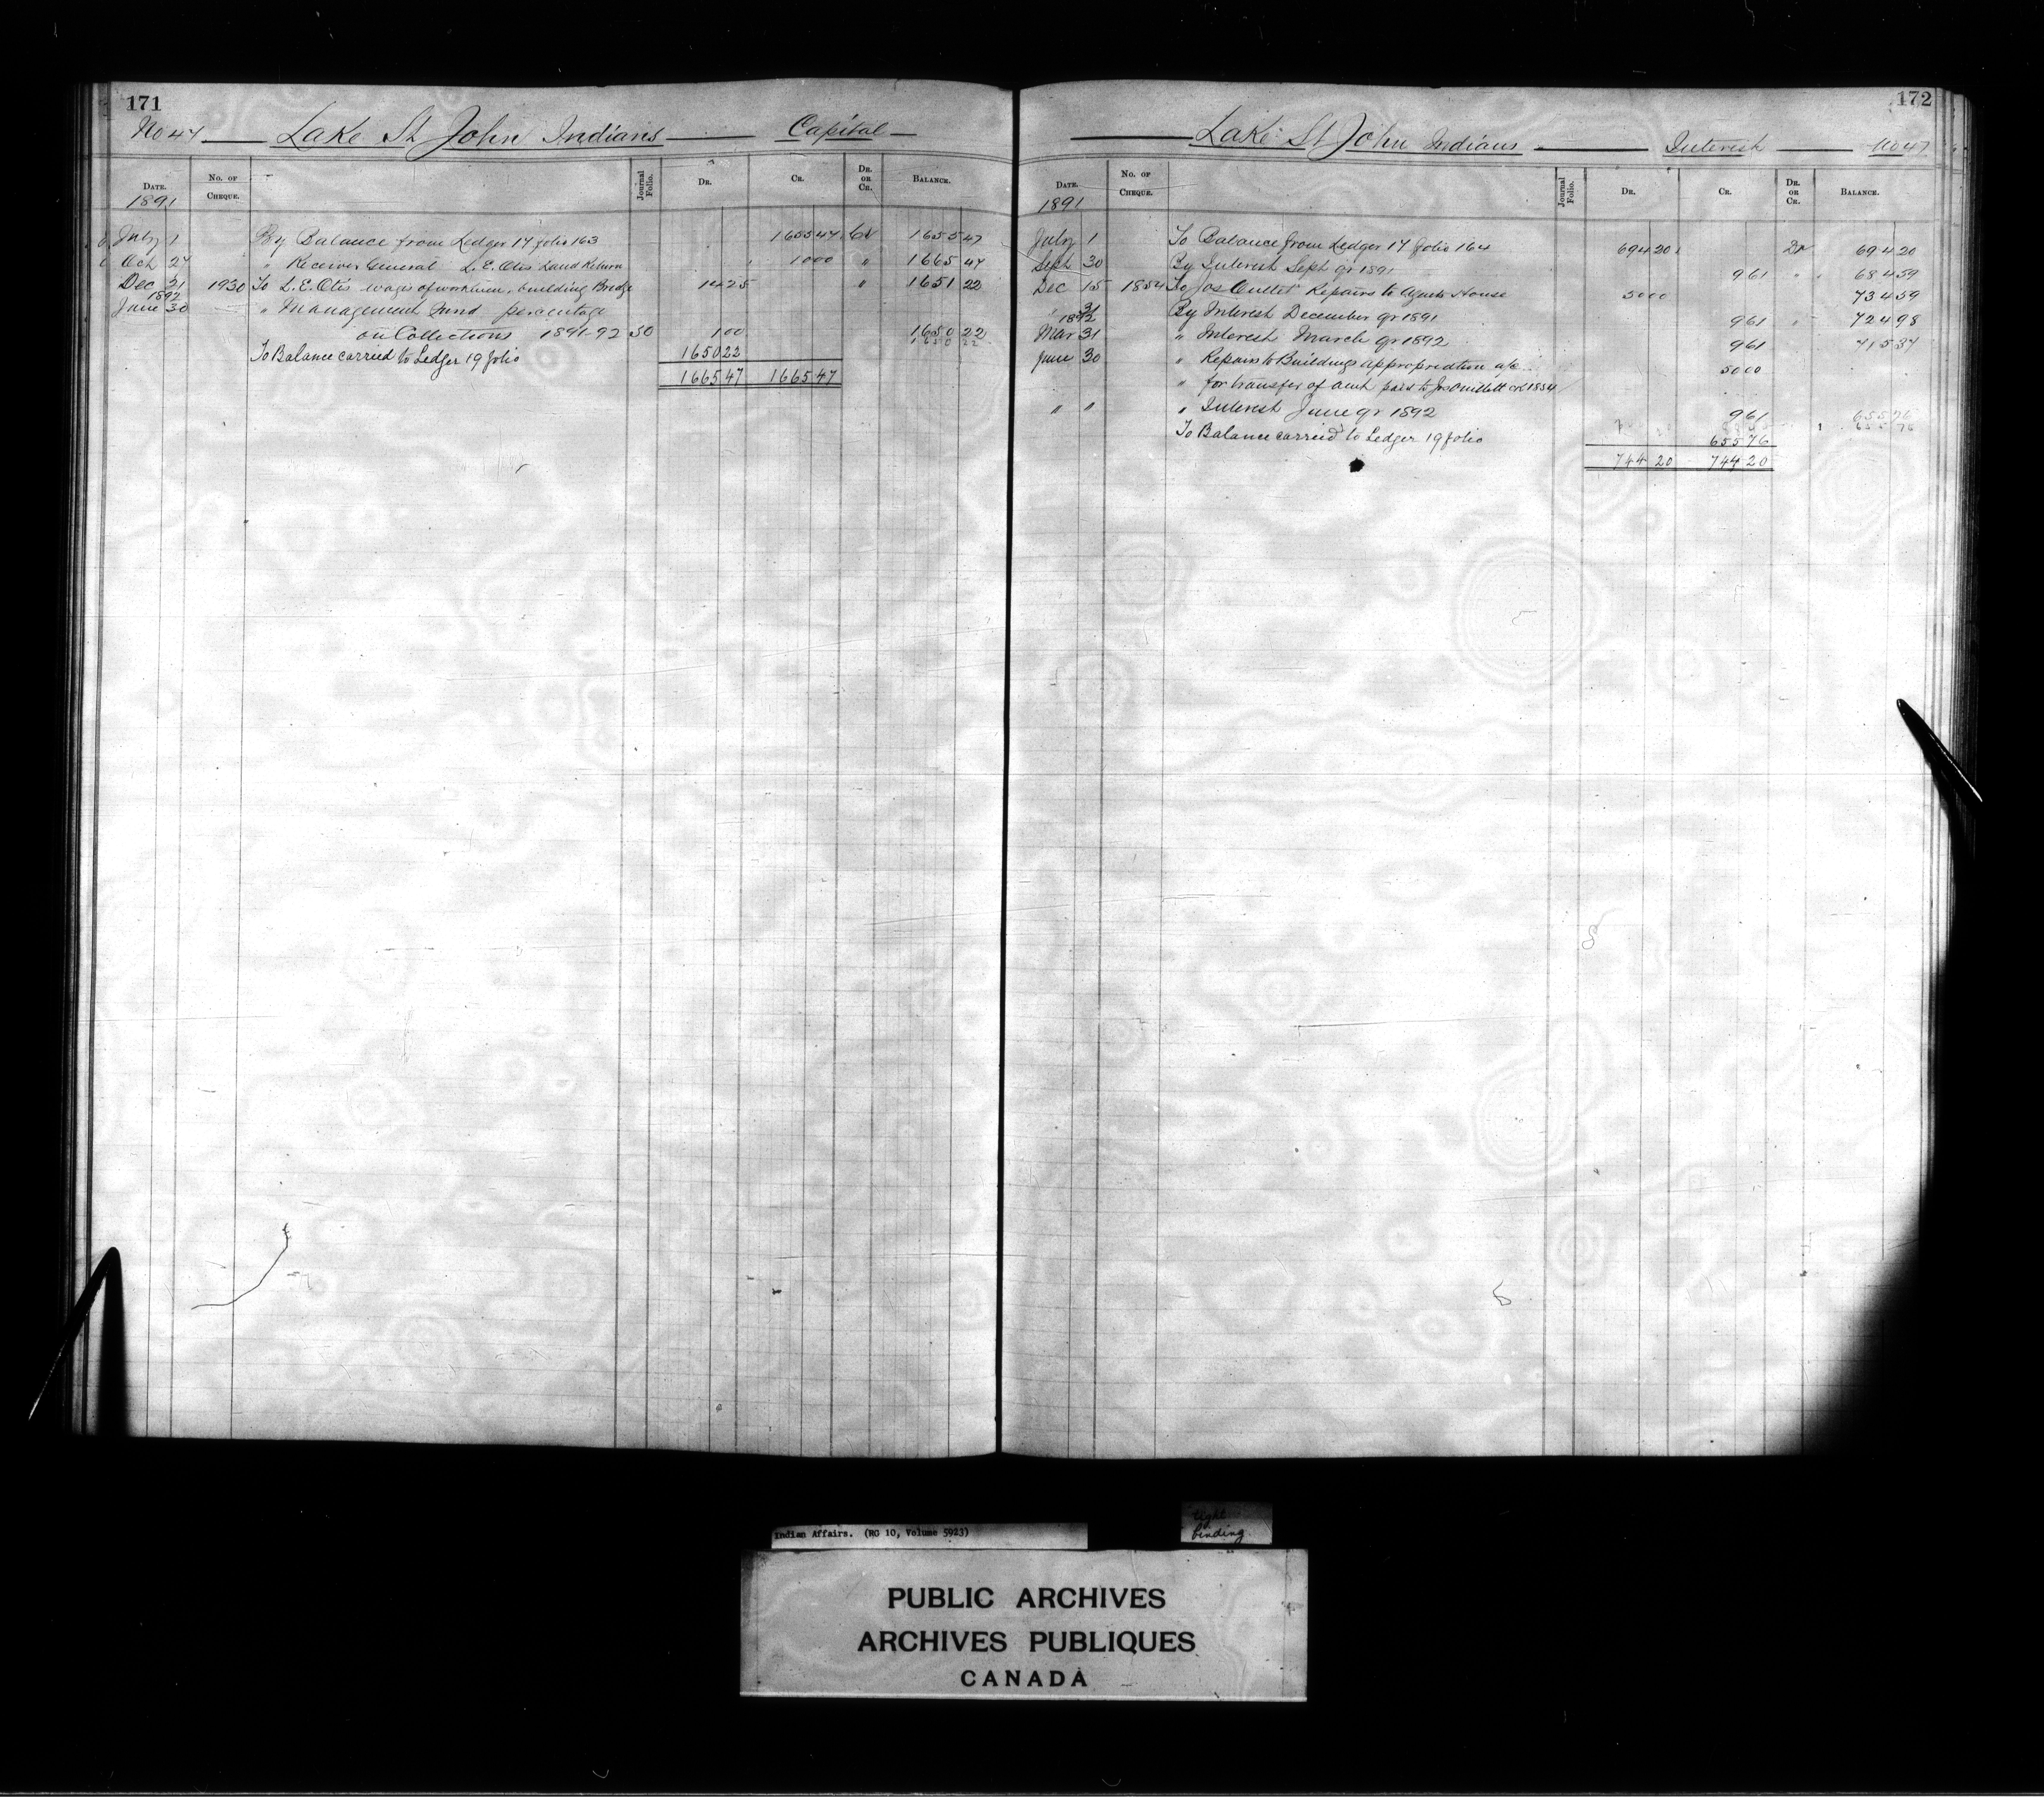 171
No 47 Lake St John Indians Capital
DATE. No. OF CHEQUE. Journal Folio. DR. CR. DR. OR CR. BALANCE.
1891
July 1 By Balance from Ledger 17 folio 163 1655 47 Cr 1655 47
Oct 27 " Receiver General L. E. Otis Land Return 10 00 " 1665 47
Dec 31 1930 To L. E. Otis wages of workmen, building Bridge 14 25 " 1651 22
1892
June 30 " Management Fund percentage
on Collections 1891-92 50 1 00 1650 22
1650 22
To Balance carried to Ledger 19 folio 1650 22
1665 47 1665 47
172
Lake St John Indians Interest No 47
DATE. No. OF CHEQUE. Journal Folio. DR. CR. DR. OR CR. BALANCE.
1891
July 1 To Balance from Ledger 17 folio 164 694 20 Dr 694 20
Sept 30 By Interest Sept qr 1891 9 61 " 684 59
Dec 15 1854 To Jos Ouellet Repairs to Agents House 50 00 734 59
" 31 By Interest December qr 1891 9 61 " 724 98
1892
Mar 31 " Interest March qr 1892 9 61 715 37
June 30 " Repairs to Buildings appropriation a/c 50 00
" for transfer of amt paid to Jos Ouellett ck 1854
" " " Interest June qr 1892 9 61 655 76
655 76
To Balance carried to Ledger 19 folio 655 76
744 20 744 20
Indian Affairs. (RG 10, Volume 5923)
tight
binding
PUBLIC ARCHIVES
ARCHIVES PUBLIQUES
CANADA